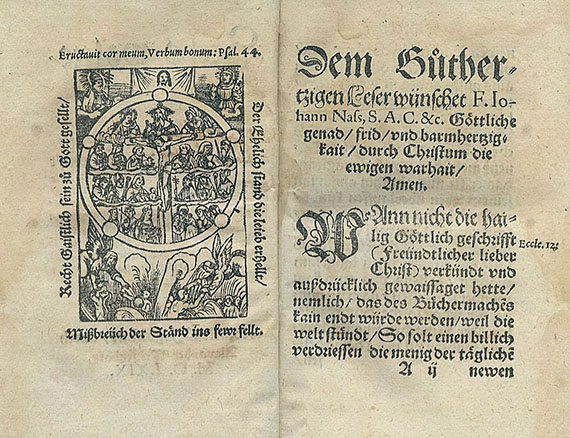 Eructauit cor meum, Verbum bonum: Psal. 44.
Recht Gaistlich sein zů Gott gesellt/
Der Ehelich stand die leteb erhellt/
Mißbreüch der Ständ ins fewr fellt.
Dem Gůther-
tzigen Leser wünschet F. Io-
hann Nass, S. A. C. &c. Göttliche
genad/ frid/ vnd barmhertzig-
kait/ durch Christum die
ewigen warhait/
Amen.
WAnn nicht die hai-
lig Göttlich geschrifft
Freündtlicher lieber
Christ/ verkündt vnd
außdrücklich geweissaget hette/
nemlich/ das des Bůchermachēs
kain endt würde werden/ weil die
welt stündt/ So solt einen billich
verdriessen die menig der täglichē
A ij newen
Eccle. 12.